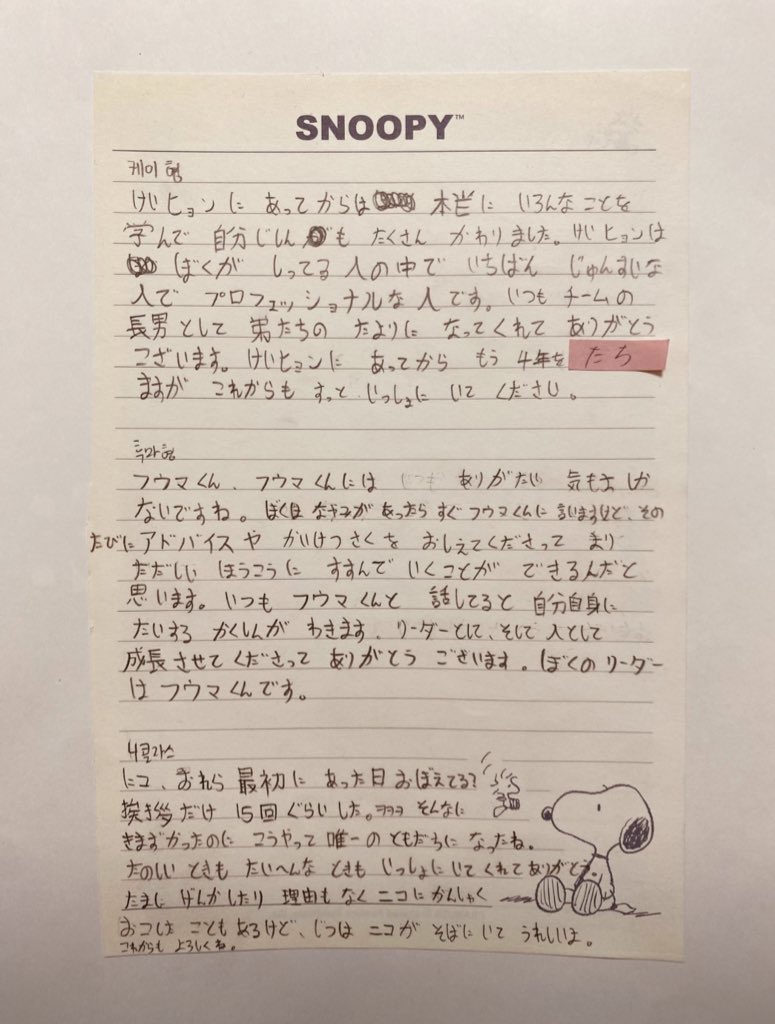 SNOOPY™
케이 형
けいヒョンに あってからは 本当に いろんなことを
学んで 自分じしんも たくさん かわりました。けいヒョンは
ぼくが しってる 人の中で いちばん じゅんすいな
人で プロフェッショナルな人です。いつも チームの
長男として 弟たちの たよりに なってくれて ありがとう
ございます。けいヒョンに あってから もう 4年を たち
ますが これからも ずっと いっしょに いて ください。
후마 형
フウマくん、フウマくんには いつも ありがたい 気もちしか
ないですね。ぼくは なやみが あったら すぐ フウマくんに 言いますけど、その
たびに アドバイスや かいけつさくを おしえてくださって より
ただしい ほうこうに すすんで いくことが できるんだと
思います。いつも フウマくんと 話してると 自分自身に
たいする かくしんが わきます。リーダーとして、そして 人として
成長させてくださって ありがとう ございます。ぼくの リーダー
は フウマくんです。
니콜라스
ニコ、おれら 最初に あった日 おぼえてる?
挨拶だけ 15回ぐらいした。ㅋㅋㅋ そんなに
きまずかったのに こうやって 唯一の ともだちに なったね。
たのしい ときも たいへんな ときも いっしょに いてくれて ありがとう
たまに けんかしたり 理由も なく ニコに かんしゃく
おこす ことも あるけど、じつは ニコが そばに いて うれしいよ。
これからも よろしくね。